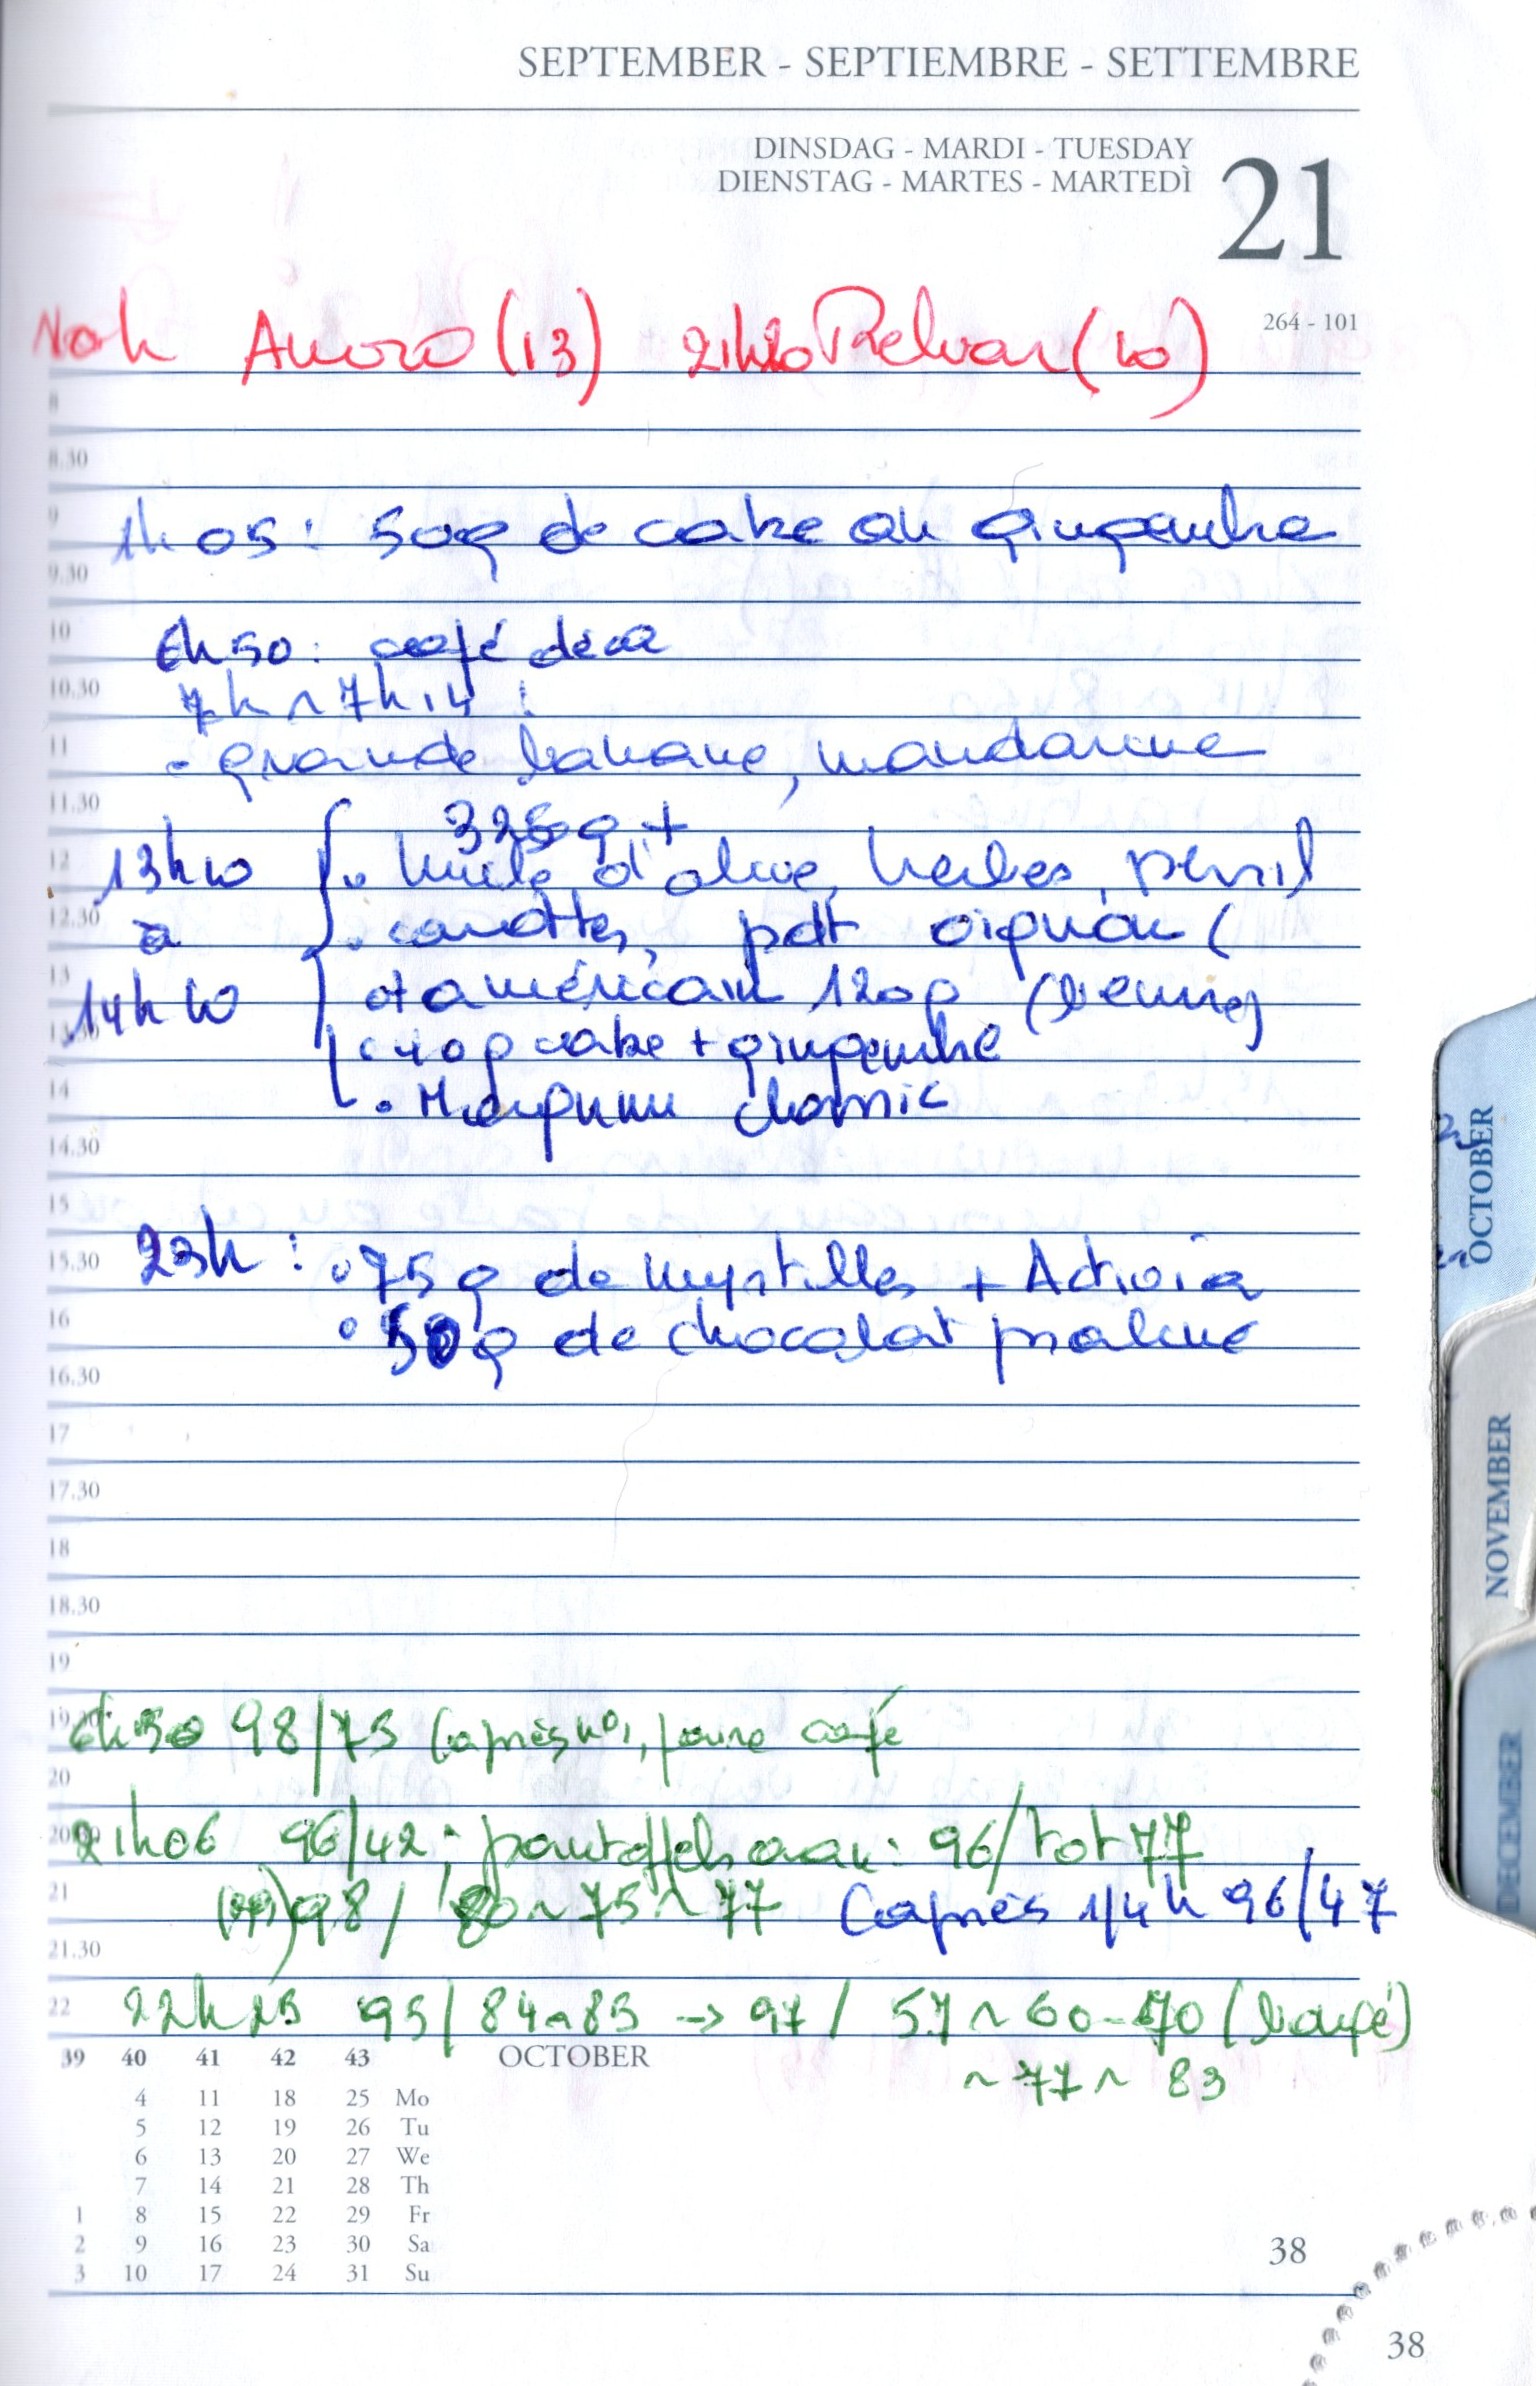 SEPTEMBER - SEPTIEMBRE - SETTEMBRE
DINSDAG - MARDI - TUESDAY
DIENSTAG - MARTES - MARTEDÌ
21
264 - 101
(13) 21h20 (10)
8
8.30
9
1h05: 50g de cake au gingembre
9.30
10
6h50: café déca
10.30
7h ~ 7h14 :
11
- grande banane, mandarine
11.30
325g +
12
13h10
• huile d'olive, herbes, persil
12.30
à
• carottes, pdt oignon (
13
14h10
et américain 120g
• 40g cake + gingembre
14
• chomic
14.30
15
15.30
23h : • 75g de myrtilles + Activia
16
• 50g de chocolat praliné
16.30
17
17.30
18
18.30
19
6h50 98/75 café
20
21h06 96/42; pantoffels aan: 96/tot 77
21
98/ 80 ~ 75 ~ 77 (après 1/4h 96/47
21.30
22
22h25 95/84~85 → 97/ 57 ~ 60 ~ 70
~ 77 ~ 83
39 40 41 42 43 OCTOBER
4 11 18 25 Mo
5 12 19 26 Tu
6 13 20 27 We
7 14 21 28 Th
1 8 15 22 29 Fr
2 9 16 23 30 Sa
3 10 17 24 31 Su
38
38
OCTOBER
NOVEMBER
DECEMBER